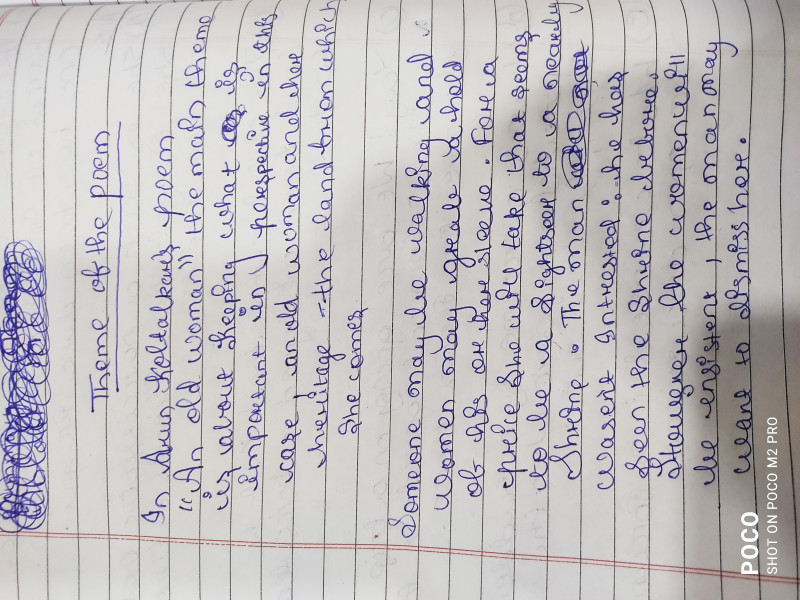 Theme of the poem
In Arun Koltalkar's poem
"An old woman" the main theme
is about keeping what is
important in perspective in this
case, an old woman and her
heritage - the land from which
she comes.
Someone may be walking and
women may grab a hold
of his or her sleeve. For a
she will take that seems
to be a sightseer to a nearly
Shrine. The man
wasent intrested: he has
seen the shrine before.
However the women will
be ensistent, the man may
want to dismiss her.
POCO
SHOT ON POCO M2 PRO